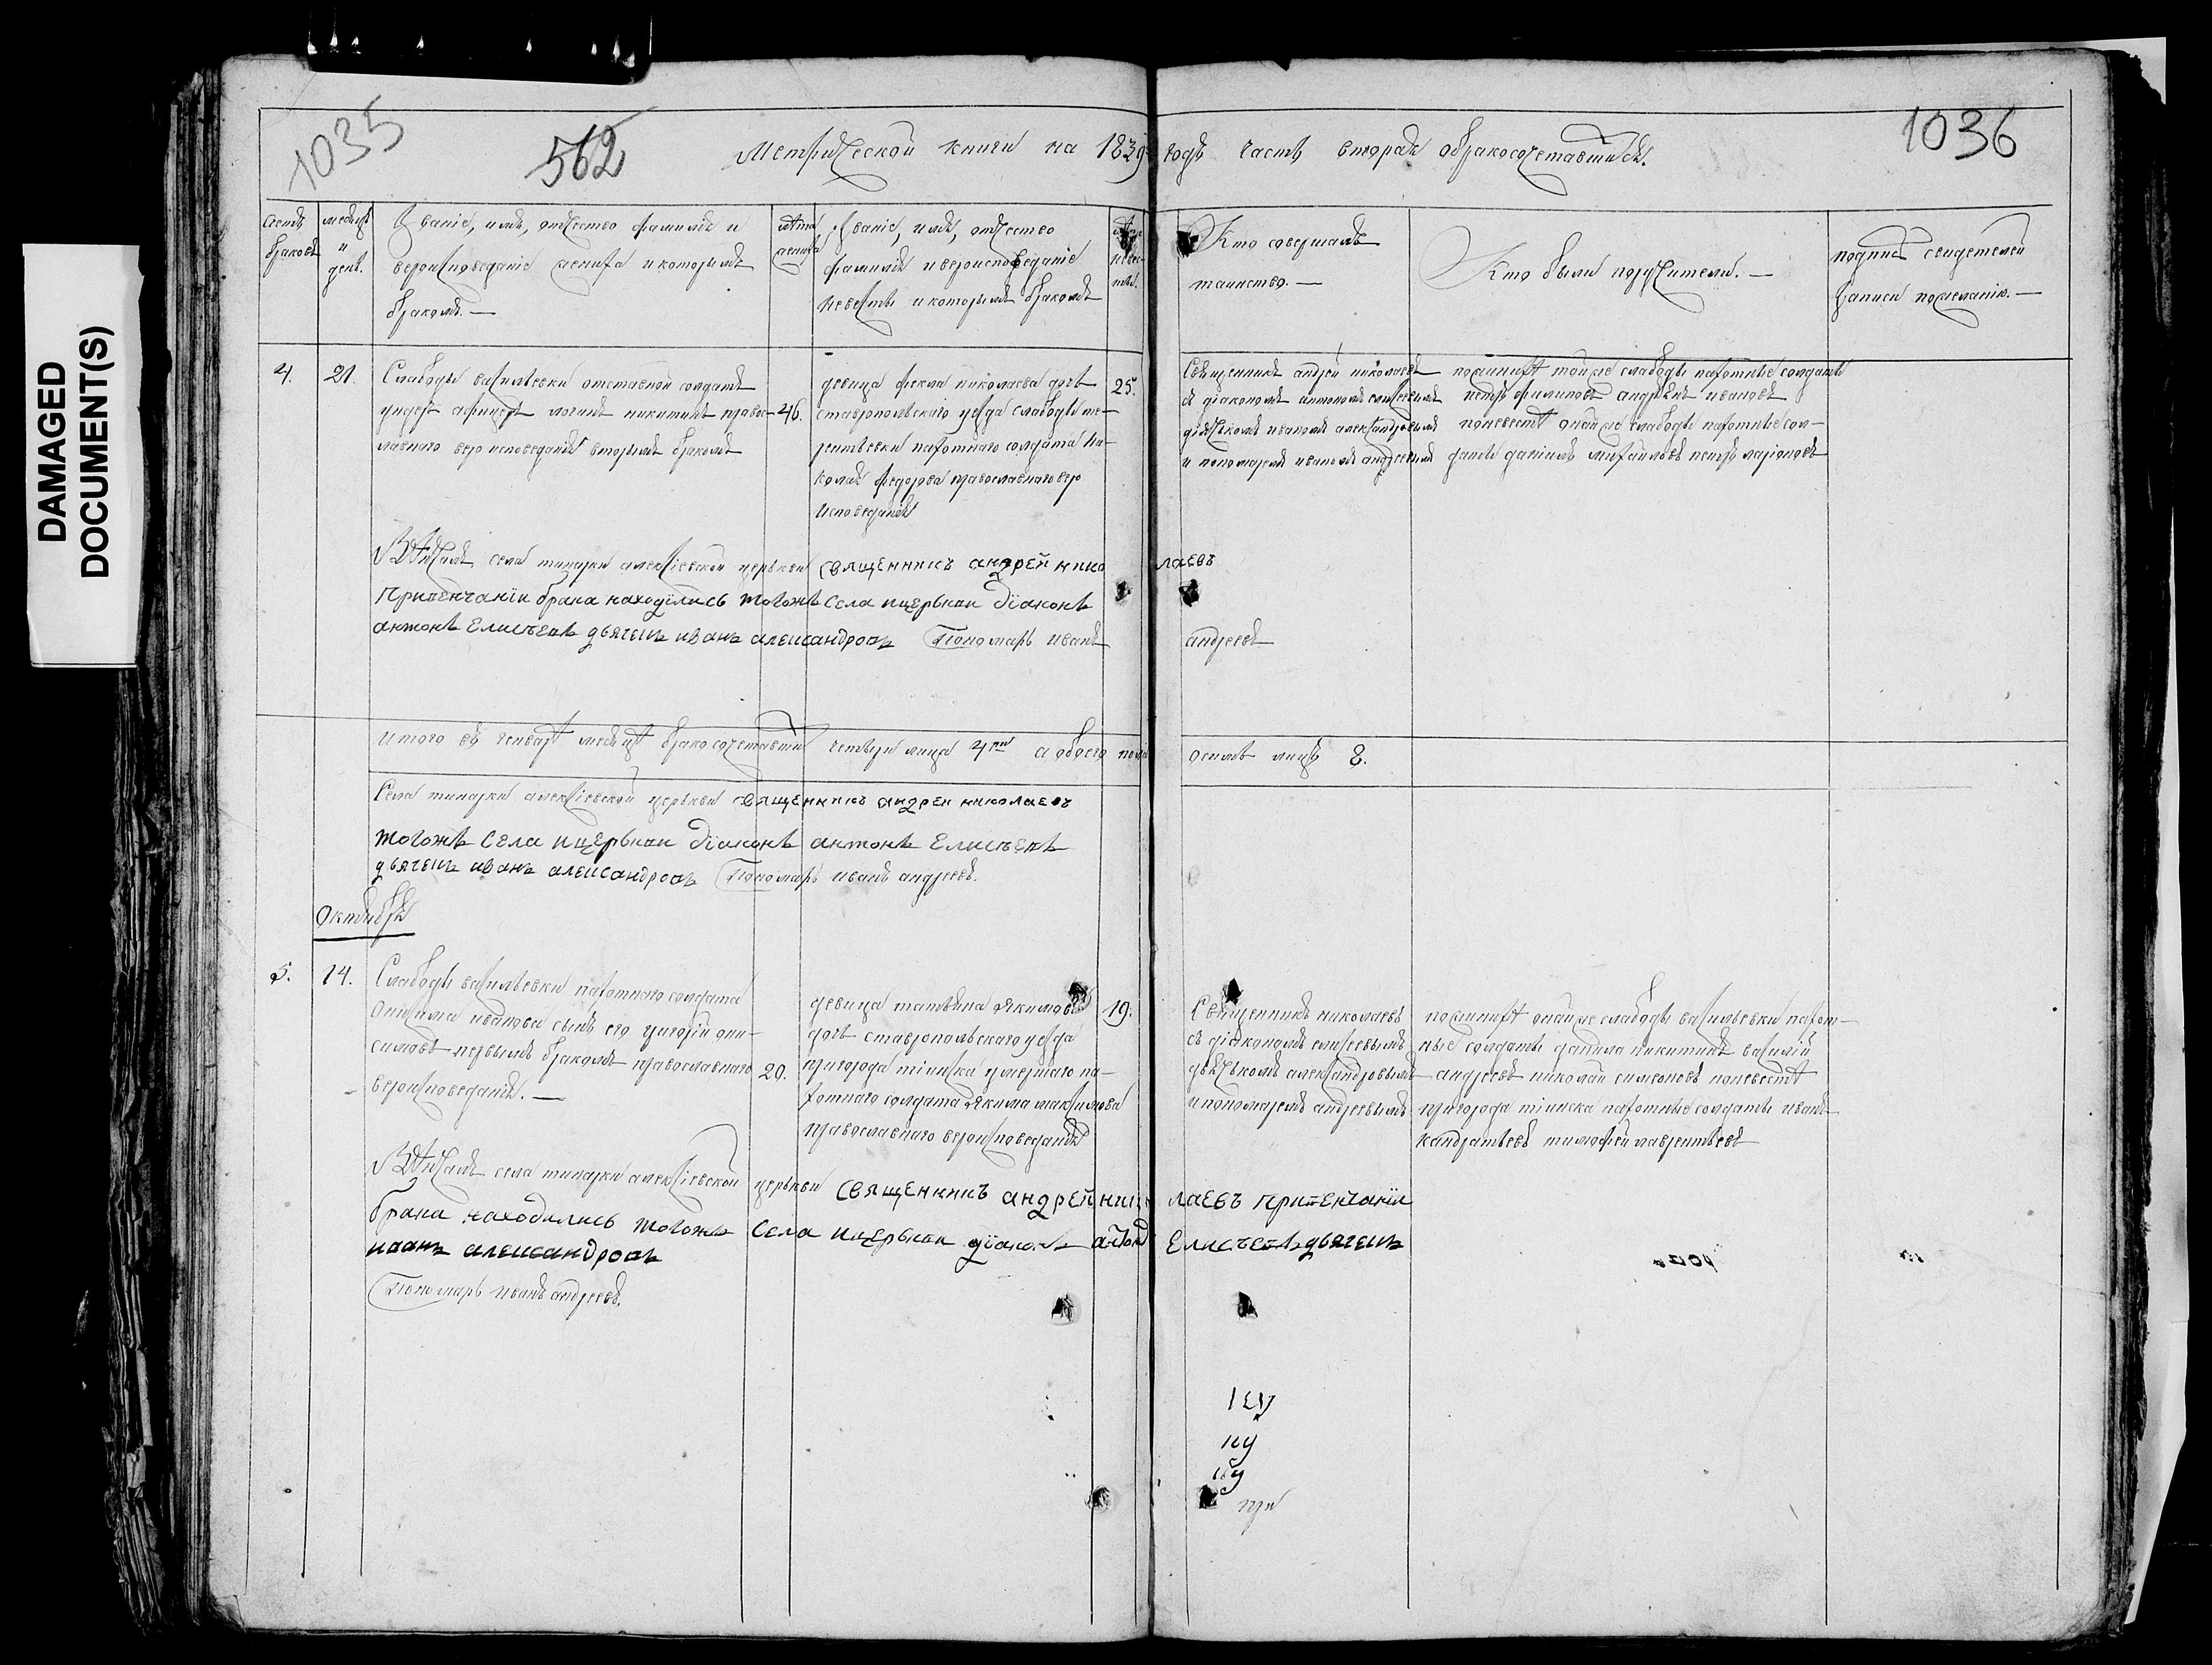 DAMAGED
DOCUMENT(S)
1035
562
Метрической книги на 1839 годъ часть вторая о бракосочетавшихся.
1036
счетъ
браковъ
месяцъ
и
день.
Звание, имя, отчество фамилия и
вероисповедание жениха и которымъ
бракомъ. —
лета
жениха
Звание, имя, отчество
фамилия и вероисповедание
невесты и которымъ бракомъ
Кто совершалъ
таинство. —
Кто были поручители. —
подпись свидетелей
записи по желанию. —
4.
21.
Слабоды васильевки отставной солдатъ
ундеръ афицеръ логинъ никитинъ право-
лавнаго веро исповедания вторымъ бракомъ
46.
девица фекла николаева дочь
ставропольскаго уезда слабоды те-
рентьевки пахотнаго солдата ни-
колая федорова православнаго веро
исповедания
25.
Священникъ андрей николаевъ
съ диакономъ антономъ елисеевымъ
дьячькомъ иваномъ александровымъ
и пономаремъ иваномъ андреевымъ
по женихе той же слабоды пахотные солдаты
петръ филиповъ андреянъ ивановъ
по невесте онай же слабоды пахотные сол-
даты данiилъ михайловъ петръ ларiоновъ
Венчалъ села тинарки алексiевской церькви священникъ андрей николаевъ
При венчанiи брака находились тогожъ села и церькви дiаконъ
антонъ Елисъевъ дьячекъ иванъ александровъ Пономарь иванъ андреевъ
Итого въ генваре месяце бракосочетавши четверы лица 4ри а обоего пола осьмь лицъ 8.
Села тинарки алексiевской церькви священникъ андрей николаевъ
тогожъ села и церькви дiаконъ антонъ Елисъевъ
дьячекъ иванъ александровъ Пономарь иванъ андреевъ.
Октября
5.
14.
Слабоды васильевки пахотнаго солдата
Онисима иванова сынъ его григорiй они-
симовъ первымъ бракомъ православнаго
вероисповедания. —
20.
девица татьяна якимова
дочь ставропольскаго уезда
пригорода тiинска умершаго па-
хотнаго солдата якима максимова
православнаго вероисповедания
19.
Священникъ николаевъ
съ дiакономъ елисеевымъ
дьячькомъ александровымъ
и пономаремъ андреевымъ
по женихе онай же слабоды васильевки пахот-
ные солдаты данила никитинъ василiй
андреевъ николай симеоновъ по невесте
пригорода тiинска пахотные солдаты иванъ
кандратьевъ тимофей лаврентьевъ
Венчалъ села тинарки алексiевской церькви священникъ андрей николаевъ При венчанiи
брака находились тогожъ села и церькви дiаконъ антонъ Елисъевъ дьячекъ
иванъ александровъ
Пономарь иванъ андреевъ.